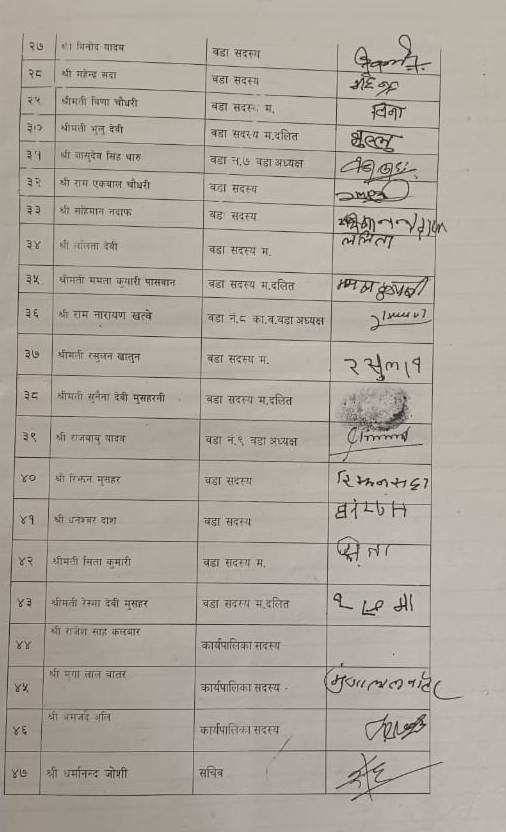 २७ श्री विनोद यादव वडा सदस्य
२८ श्री महेन्द्र सदा वडा सदस्य महेन्द्र
२९ श्रीमती विणा चौधरी वडा सदस्य म. विना
३० श्रीमती भुलु देवी वडा सदस्य म.दलित भुल्लु
३१ श्री वासुदेव सिंह थारु वडा नं.७ वडा अध्यक्ष
३२ श्री राम एकवाल चौधरी वडा सदस्य
३३ श्री महिमान नदाफ वडा सदस्य
३४ श्री ललिता देवी वडा सदस्य म. ललिता
३५ श्रीमती ममता कुमारी पासवान वडा सदस्य म.दलित
३६ श्री राम नारायण खत्वे वडा नं.८ का.व.वडा अध्यक्ष
३७ श्रीमती रसुलन खातुन वडा सदस्य म.
३८ श्रीमती सुनैना देवी मुसहरनी वडा सदस्य म.दलित
३९ श्री राजबाबु यादव वडा नं.९ वडा अध्यक्ष
४० श्री रिझन मुसहर वडा सदस्य रिझनसदा
४१ श्री धनेश्वर दास वडा सदस्य
४२ श्रीमती सिता कुमारी वडा सदस्य म. सिता
४३ श्रीमती रेस्मा देवी मुसहर वडा सदस्य म.दलित
४४ श्री राजेश साह कलवार कार्यपालिका सदस्य
४५ श्री मुंगा लाल वातर कार्यपालिका सदस्य
४६ श्री अमजद अलि कार्यपालिका सदस्य
४७ श्री धर्मानन्द जोशी सचिव